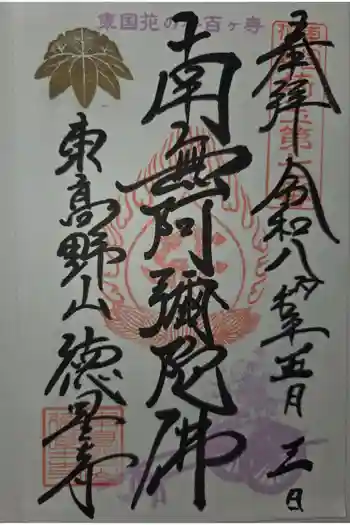 東国花の寺百ヶ寺
奉拝 令和八年五月三日
南無阿彌陀佛
東高野山 徳星寺